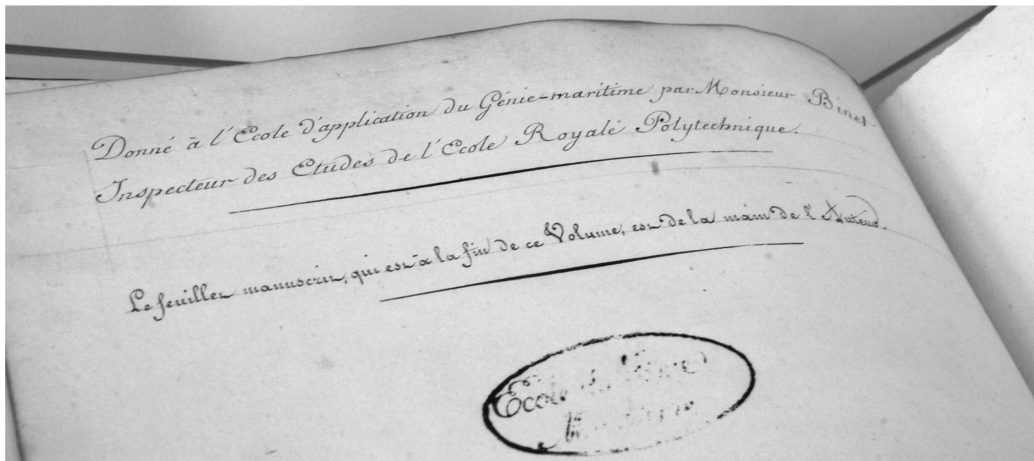 Donné à l'Ecole d'application du Génie-maritime par Monsieur Binet
Inspecteur des Etudes de l'Ecole Royale Polytechnique.
Le feuillet manuscrit, qui est à la fin de ce Volume, est de la main de l'Auteur.
Ecole